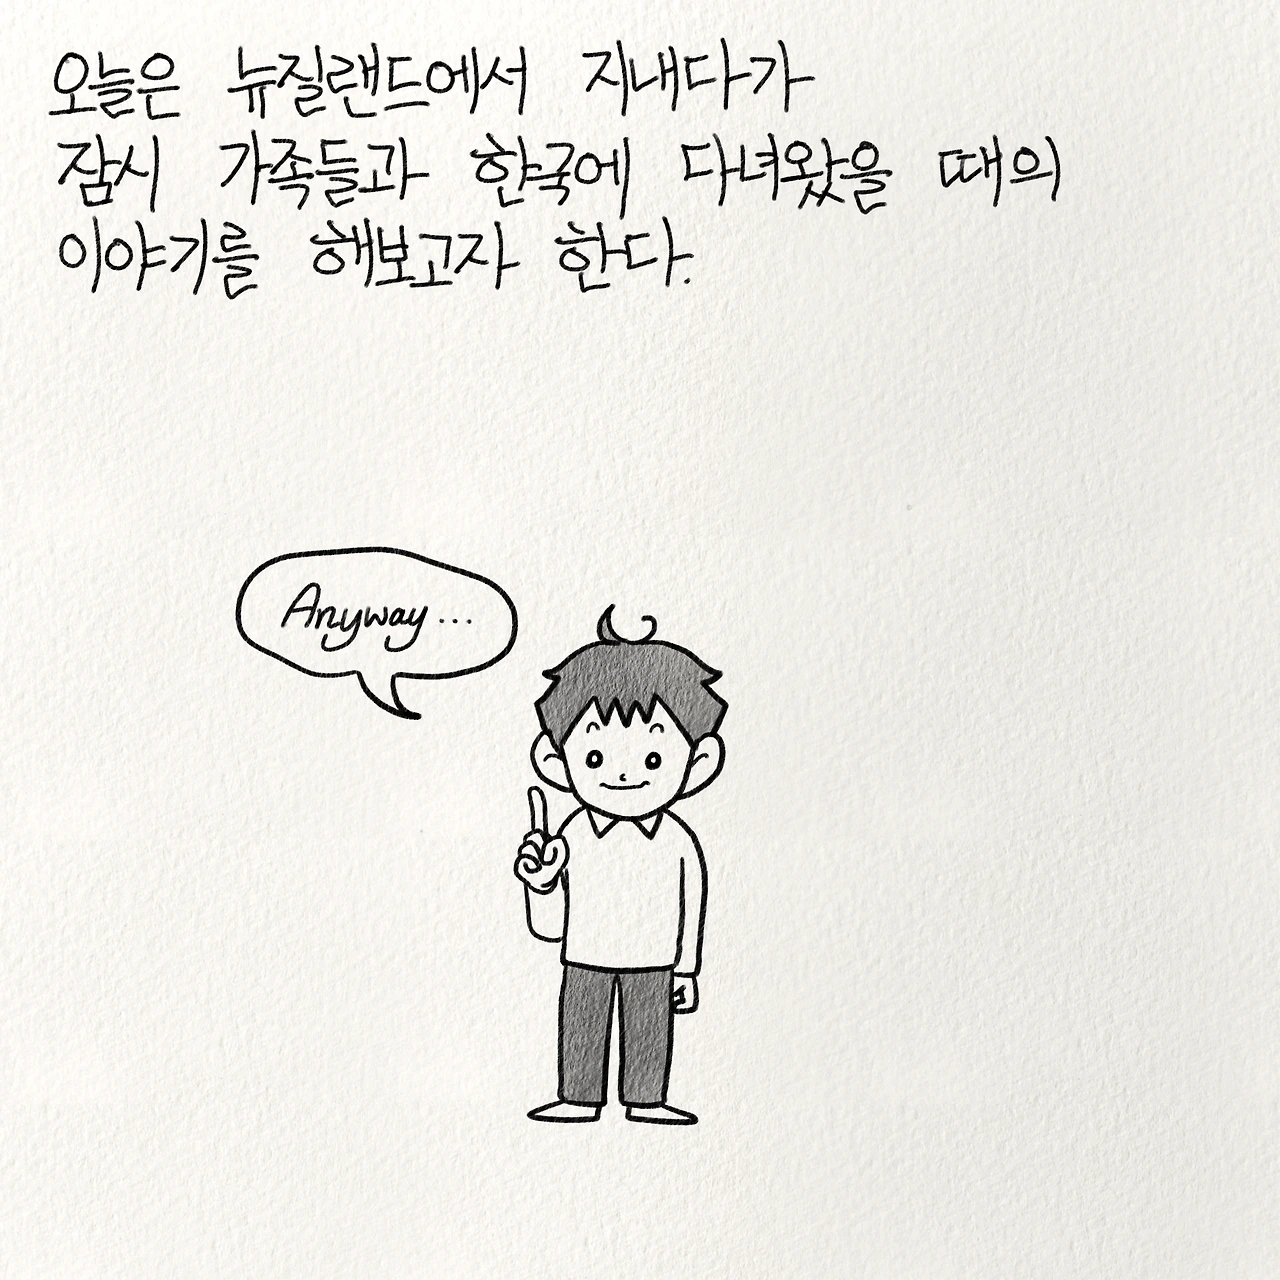 오늘은 뉴질랜드에서 지내다가
잠시 가족들과 한국에 다녀왔을 때의
이야기를 해보고자 한다.
Anyway...